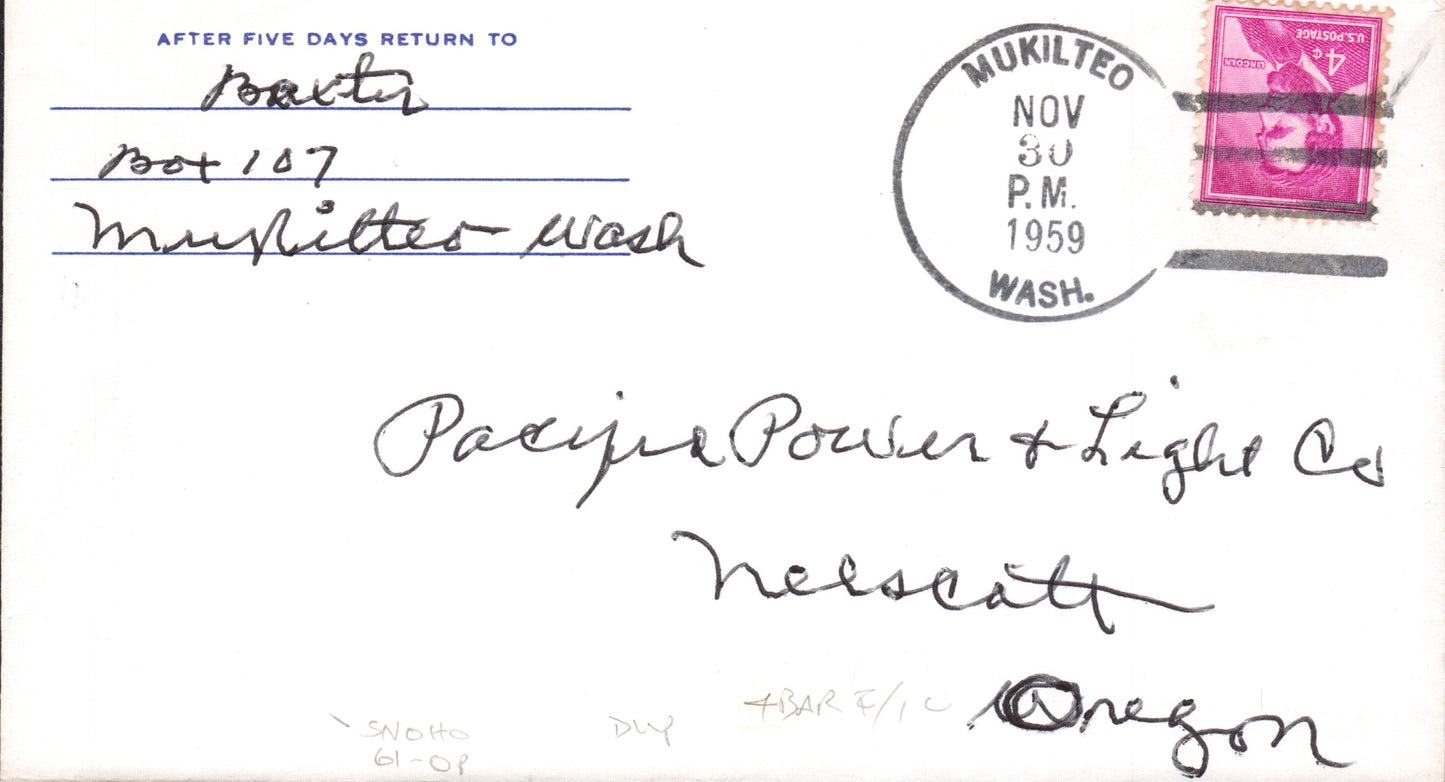 AFTER FIVE DAYS RETURN TO
Baxter
Box 107
Mukilteo Wash
MUKILTEO
NOV
30
P.M.
1959
WASH.
4¢
U.S. POSTAGE
LINCOLN
Pacific Power & Light Co
Nelscott
Oregon
4 BAR F/1
SNOHO
61-OP